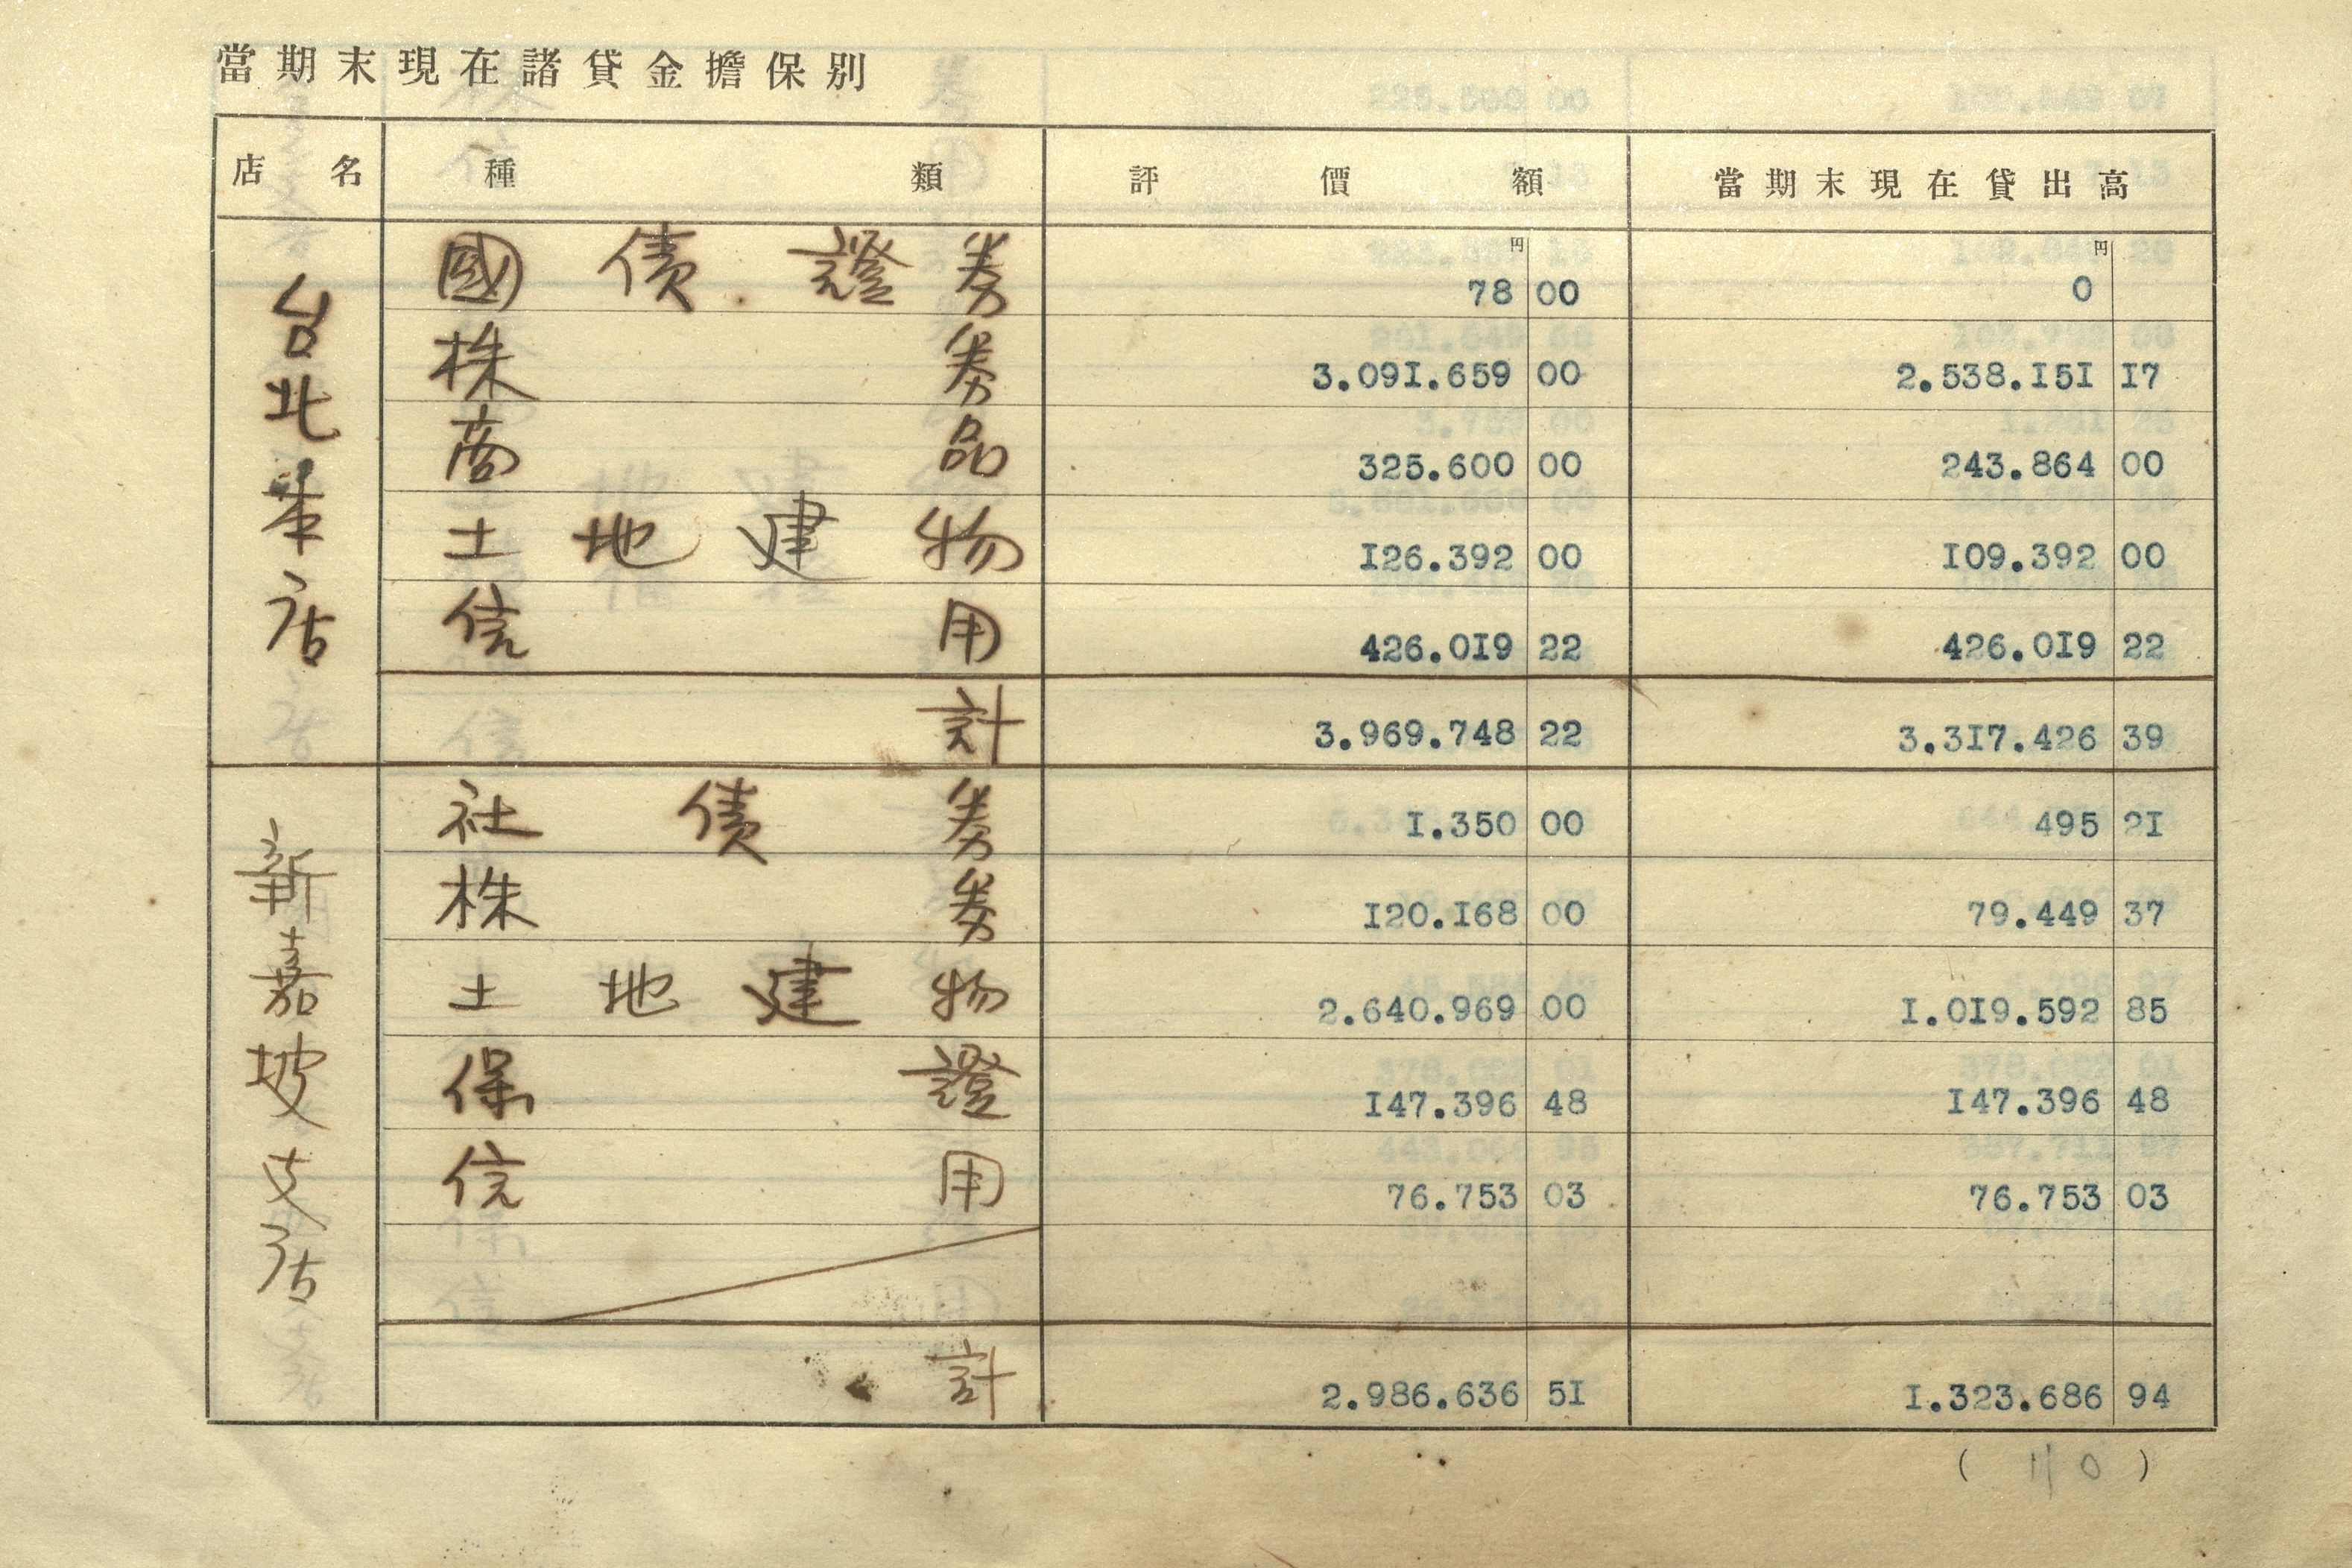 當期末現在諸貸金擔保別
店名 種類 評價額 當期末現在貸出高
円 円
台北本店 國債證券 78 00 0
株券 3.091.659 00 2.538.151 17
商品 325.600 00 243.864 00
土地建物 126.392 00 109.392 00
信用 426.019 22 426.019 22
計 3.969.748 22 3.317.426 39
新嘉坡支店 社債券 1.350 00 495 21
株券 120.168 00 79.449 37
土地建物 2.640.969 00 1.019.592 85
保證 147.396 48 147.396 48
信用 76.753 03 76.753 03
計 2.986.636 51 1.323.686 94